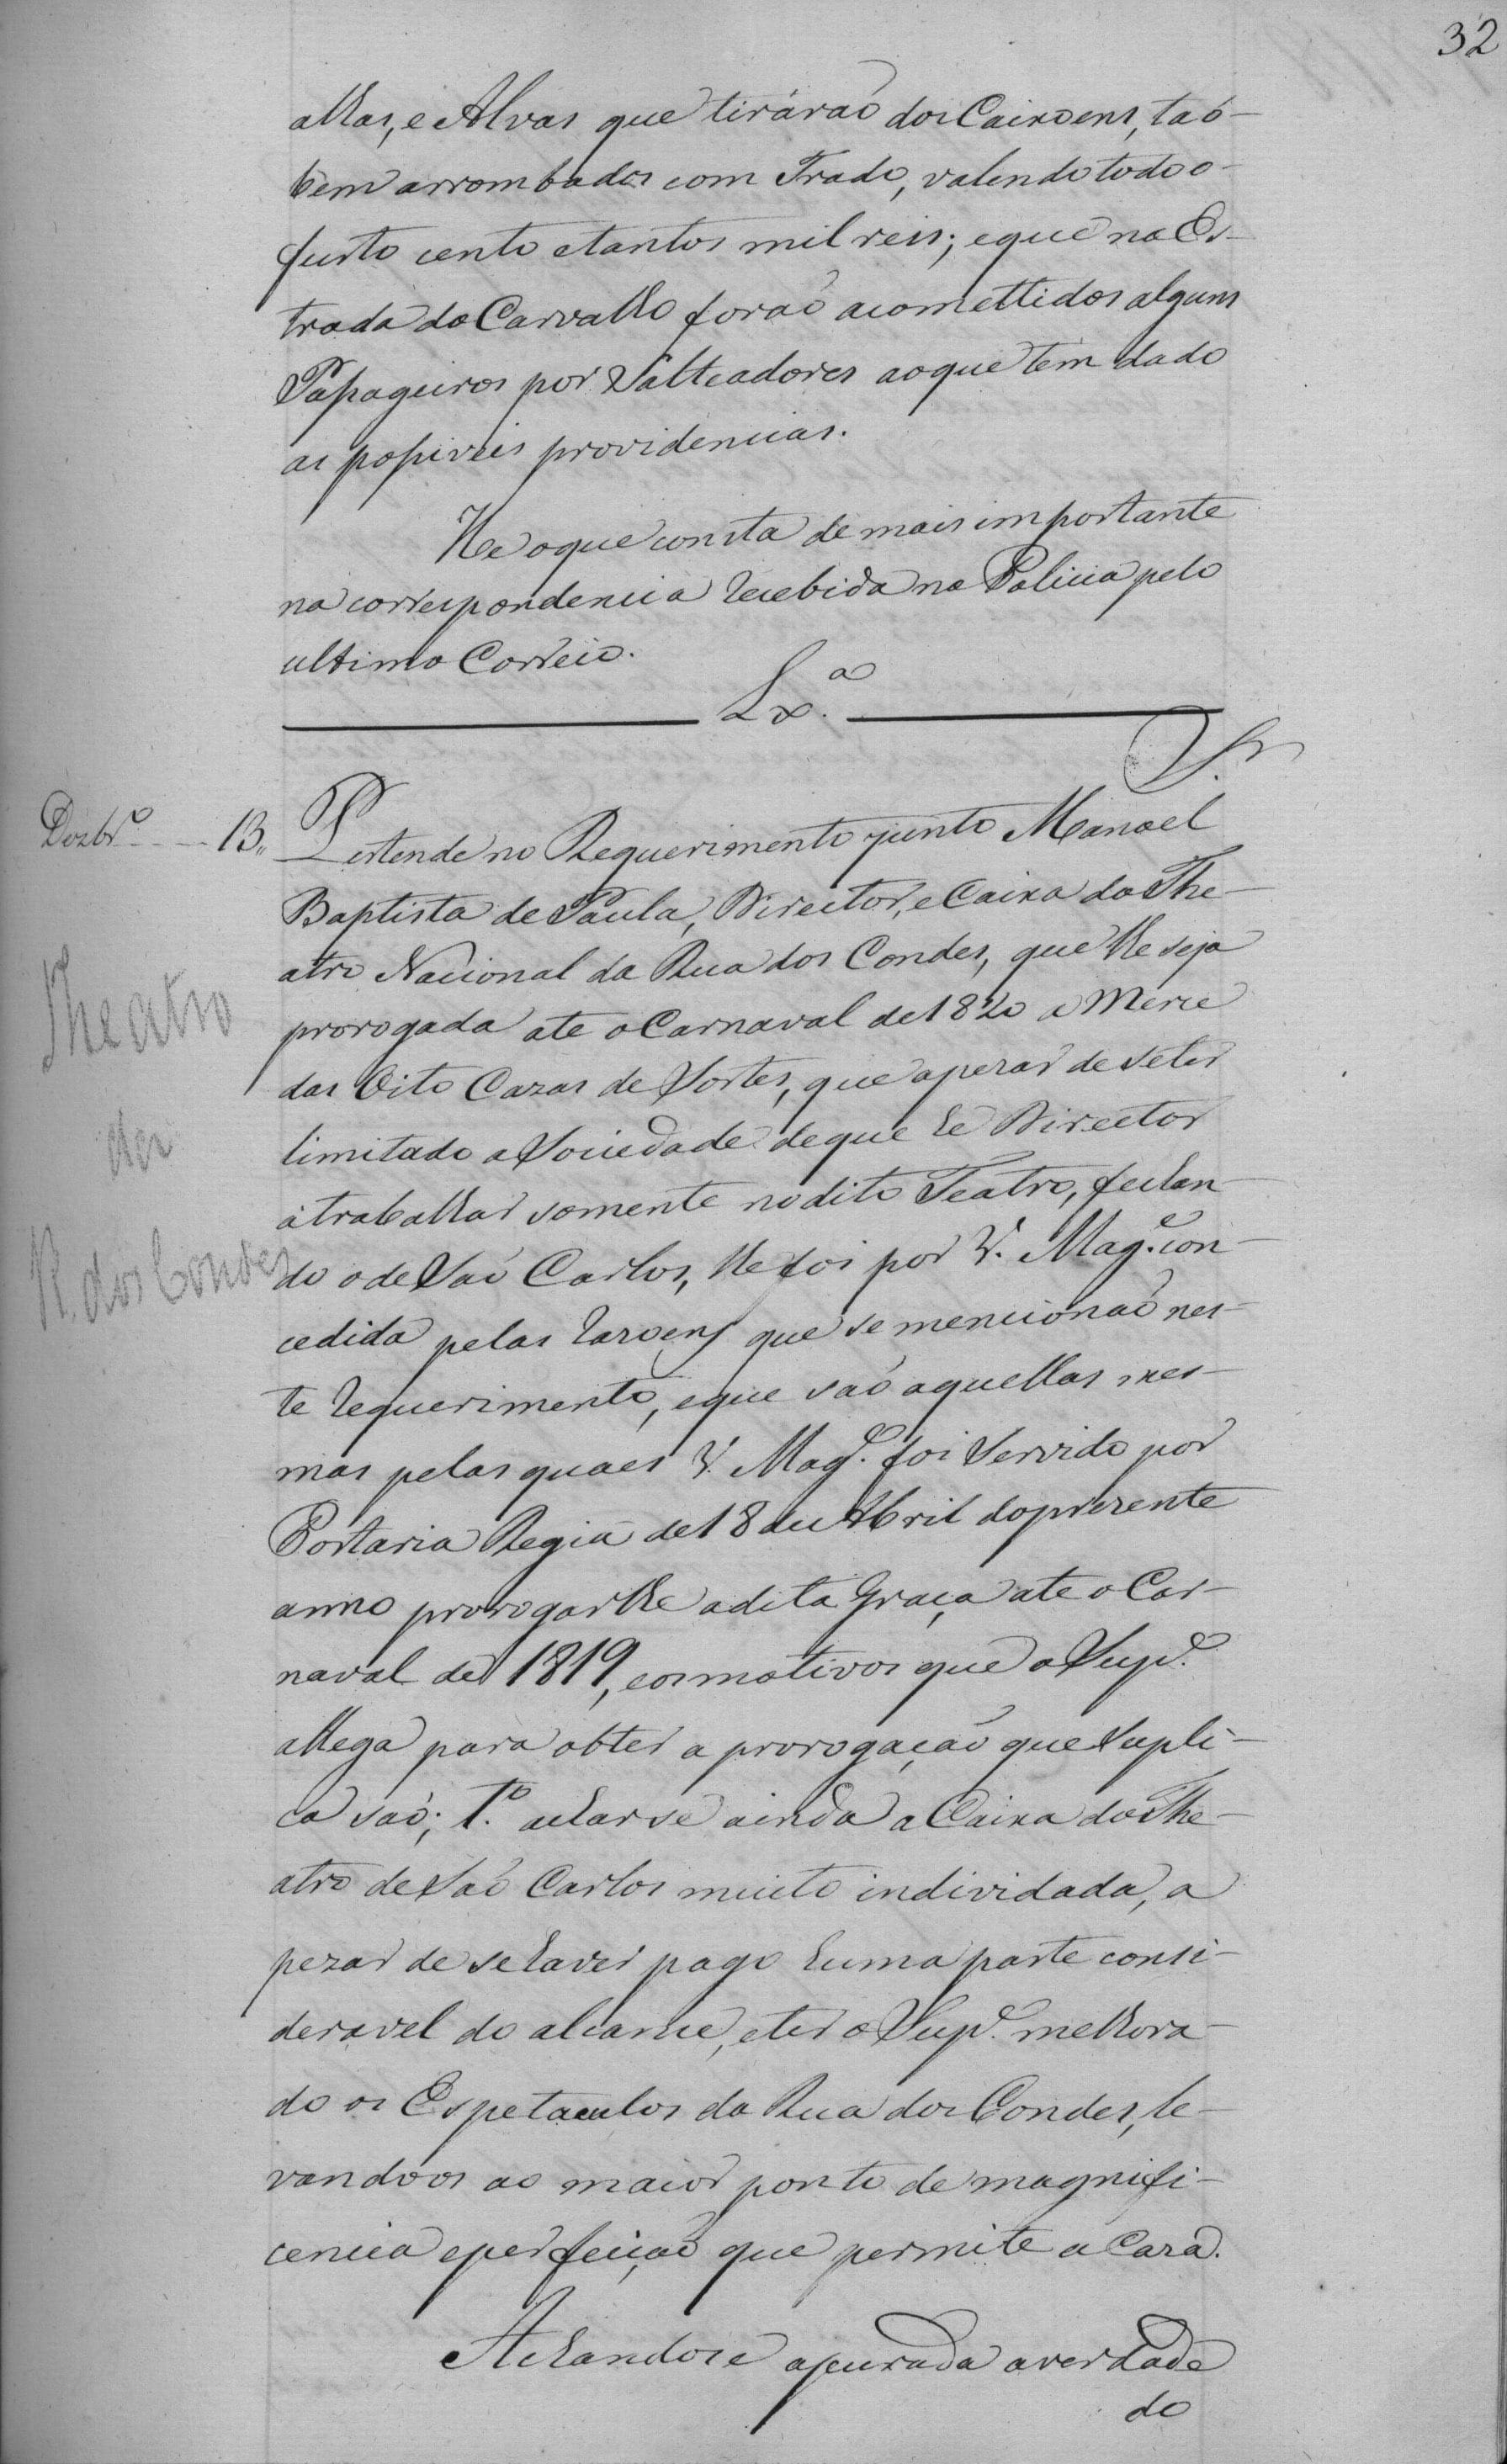 32
alhas, e Alvas que tiráraõ dos Caixoens, taõ-
bem arrombados com Trado, valendo todo o
furto cento e tantos mil reis; e que na Es-
trada do Carvalho foraõ acomettidos alguns
Passageiros por Salteadores ao que tem dado
as possiveis providencias.
He o que consta de mais importante
na correspondencia recebida na Policia pelo
ultimo Correio.
Lx.ª
S.r
Dezbr.º 13,,
Pertende no Requerimento junto Manoel
Baptista de Paula, Director, e Caixa do The-
atro Nacional da Rua dos Condes, que lhe seja
prorogada ate o Carnaval de 1820 a Merce
das Oito Cazas de Sortes, que apezar de se ter
limitado a Sociedade de que he Director
a trabalhar somente no dito Teatro, fechan-
do o de Saõ Carlos, lhe foi por V. Mag.e con-
cedida pelas razoens que se mencionaõ nes-
te requerimento, e que saõ aquellas mes-
mas pelas quaes V. Mag.e foi Servido por
Portaria Regia de 18 de Abril do prezente
anno prorogar lhe a dita Graça ate o Car-
naval de 1819, e os motivos que o Sup.e
allega para obter a prorogaçaõ que Supli-
ca saõ; 1.º achar se ainda a Caixa do The-
atro de Saõ Carlos muito individada, a
pezar de se haver pago huma parte consi-
deravel do alcance, e ter o Sup.e melhora-
do os Espetaculos da Rua dos Condes, le-
vandoos ao maior ponto de magnifi-
cencia e perfeiçaõ que permite a Caza.
Achandose apurada a verdade
do
Theatro
da
R. dos Condes